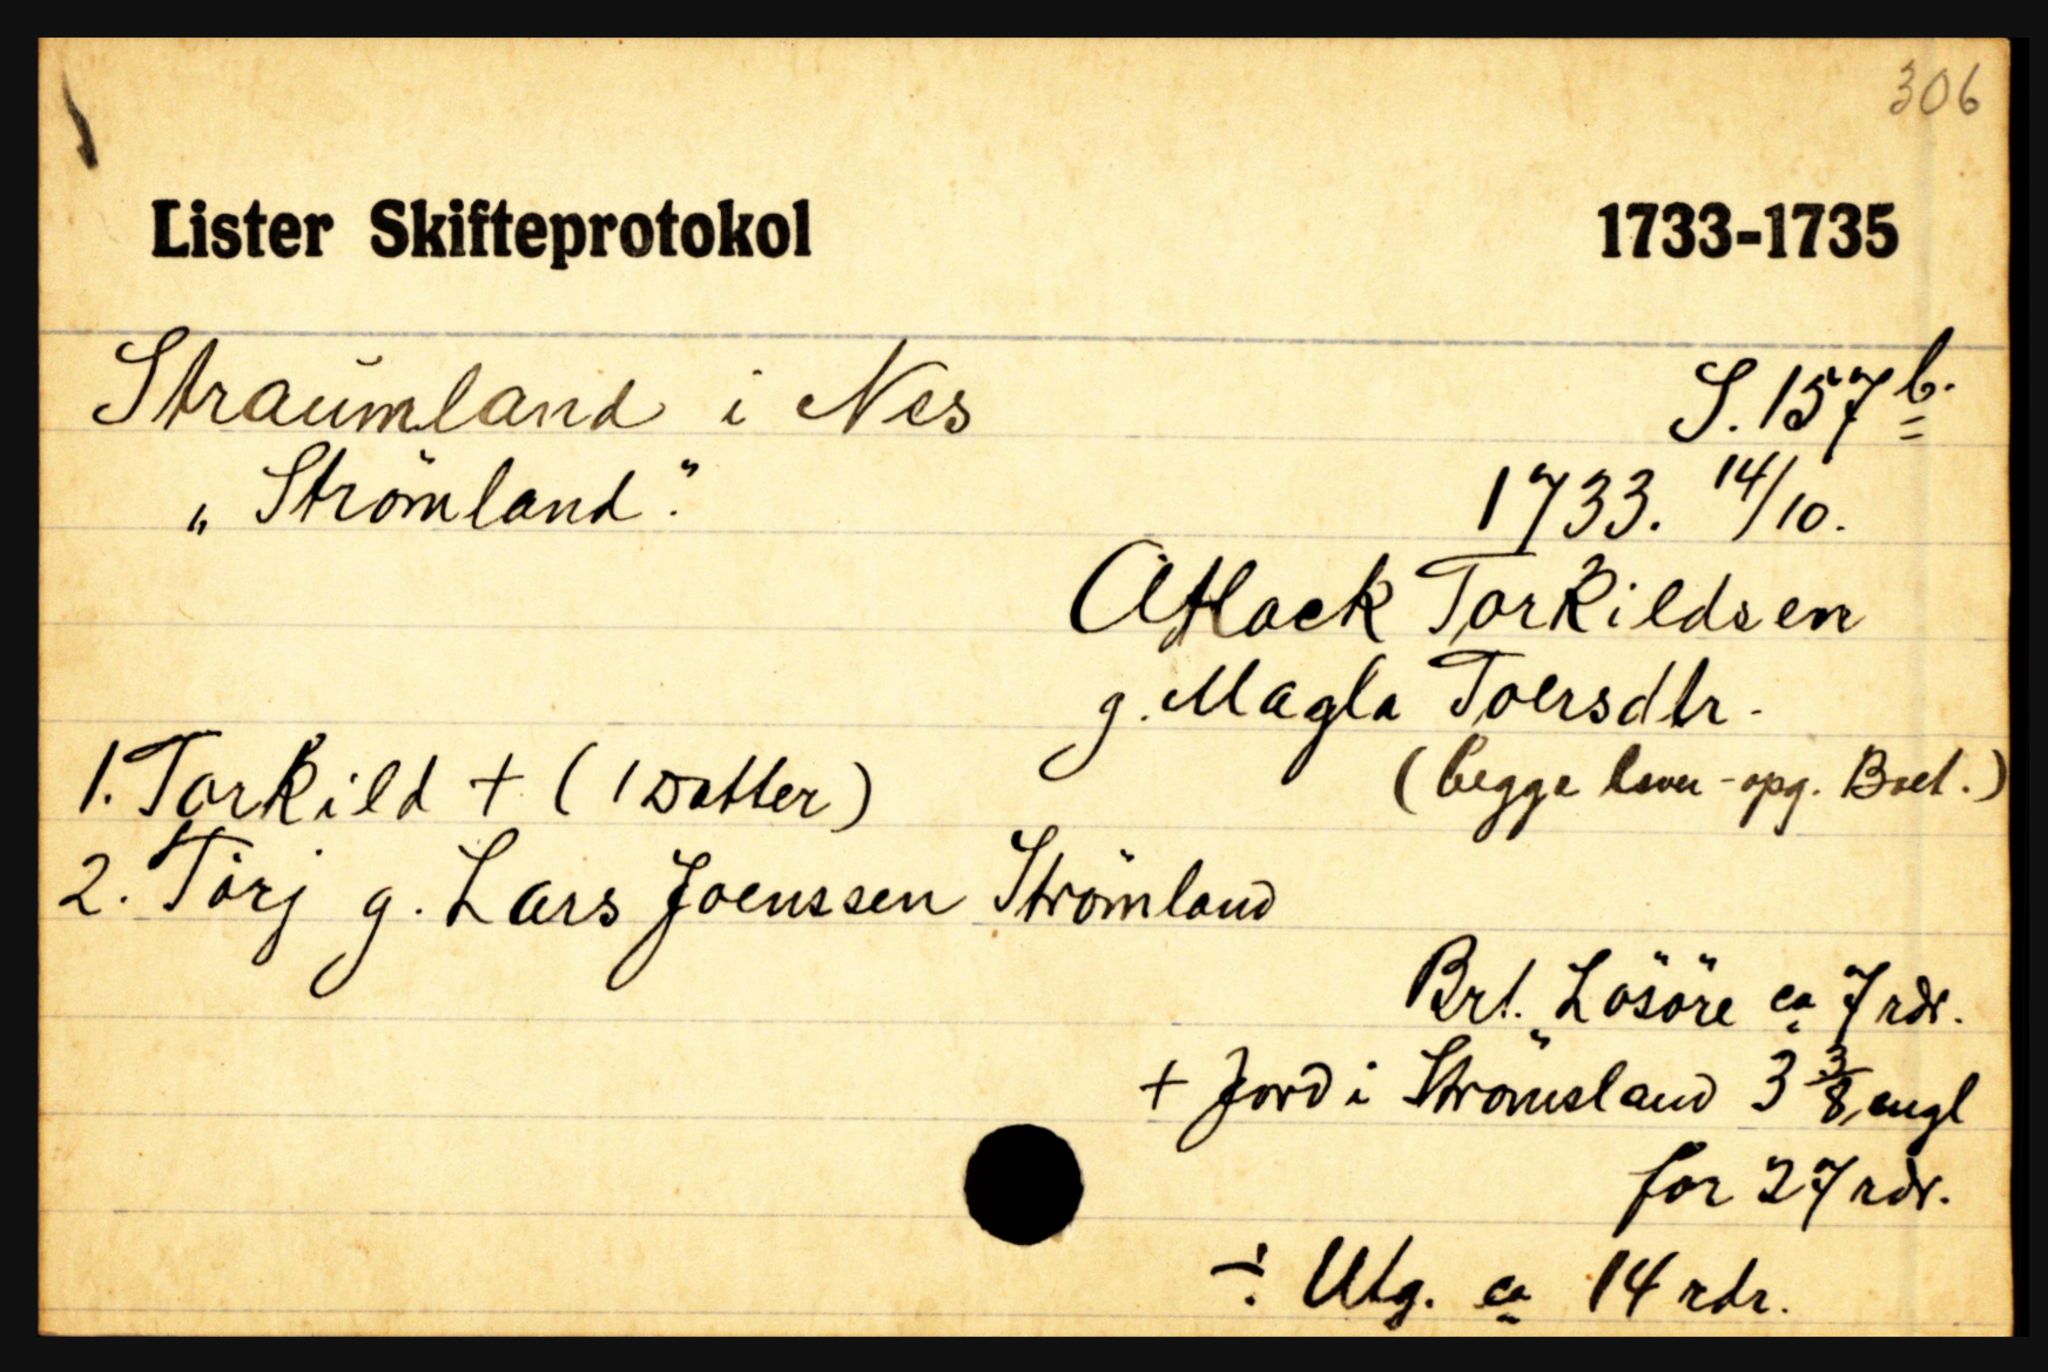 306
Lister Skifteprotokol 1733-1735
Straumland i Nes S. 157 b.
„Strömland". 1733. 14/10.
Atlack Torkildsen
g. Magla Toersdtr.
1. Torkild + (1 Datter) (begge lever - opg. Boet.)
2. Törj g. Lars Joenssen Strömland
Brt. Lösöre ca 7 rdr.
+ Jord i Strömsland 3 3/8 engl
for 27 rdr.
÷ Utg. ca 14 rdr.